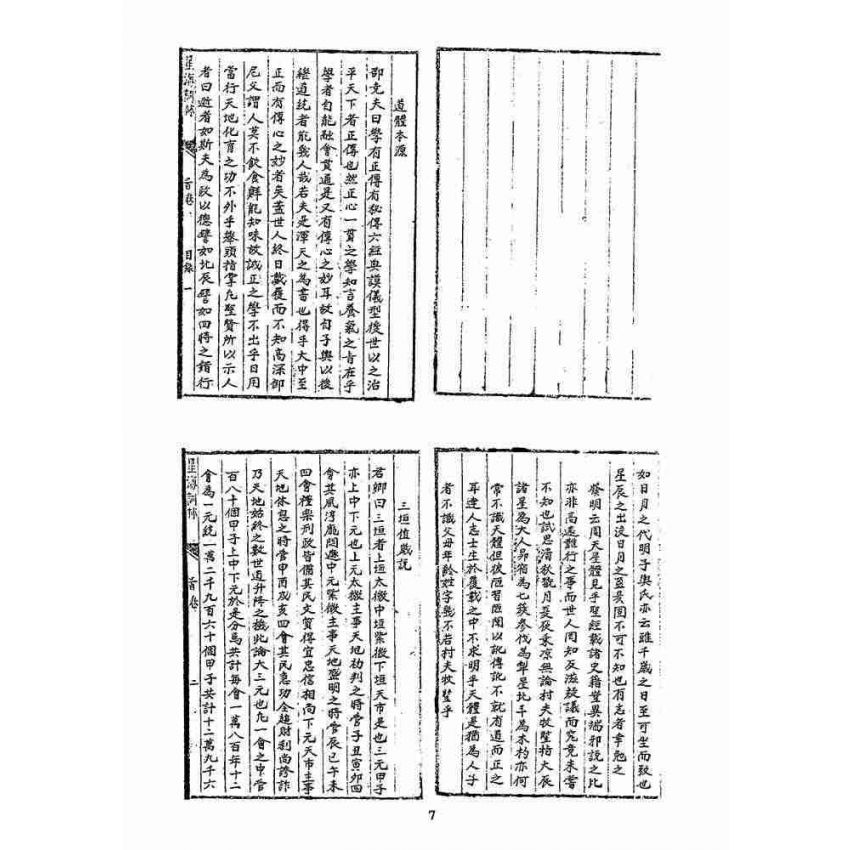 道體本源
邵堯夫曰學有正傳有秘傳六經典謨儀型後世以之治
平天下者正傳也然正心一貫之學知言養氣之旨在乎
學者自能融會貫通是又有傳心之妙耳故自子輿以後
繼道統者能幾人哉若夫是渾天之為書也得乎大中至
正而有傳心之妙者矣蓋世人終日戴履而不知高深即
尼父謂人莫不飲食鮮能知味故誠正之學不出乎日用
當行天地化育之功不外乎舉頭指掌凡聖賢所以示人
者曰逝者如斯夫為政以德譬如北辰譬如四時之錯行
首卷 目錄 一
如日月之代明子輿氏亦云雖千歲之日至可坐而致也
星辰之出沒日月之盈昃固不可不知也有志者幸勉之
發明云周天星體見乎聖經載諸史籍豈異端邪說之比
亦非高遠難行之事而世人罔知反滋疑議而究竟未嘗
不知也試思清秋歡月夏夜乘凉無論村夫牧豎指大辰
諸星為大人昴宿為七簇參伐為犁星北斗為木杓亦何
常不識天體但彼陋習陋聞以訛傳訛不就有道而正之
耳達人志士生於覆載之中不求明乎天體是猶為人子
者不識父母年齡姓字幾不若村夫牧豎乎
三垣值歲說
君卿曰三垣者上垣太微中垣紫微下垣天市是也三元甲子
亦上中下元也上元太微主事天地初判之時管子丑寅卯四
會其風淳龐悶遯中元紫微主事天地盛明之時管辰巳午未
四會禮樂刑政皆備其民文質得宜忠信相尚下元天市主事
天地休息之時管申酉戌亥四會其民急功全趨財利尚誇詐
乃天地始終之數世道升降之機此論大三元也凢一會之中管
百八十個甲子上中下元於是分焉共計每會一萬八百年十二
會為一元統一萬二千九百六十個甲子共計十二萬九千六
首卷 二
7